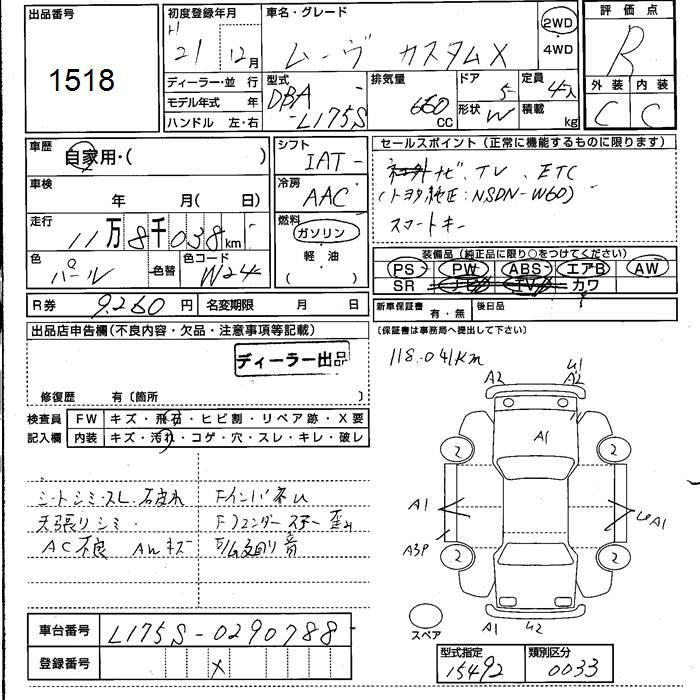 出品番号
1518
初度登録年月
H
21年 12月
車名・グレード
ムーヴ カスタムX
2WD
4WD
評価点
R
外装 内装
C C
ディーラー・並行
モデル年式 年
ハンドル 左・右
型式
DBA-
-L175S
排気量
660
CC
ドア
5
定員
4人
形状
W
積載
kg
車歴
自家用・( )
車検
年 月( 日)
走行
11万8千038km
色
パール
色替
色コード
W24
シフト
IAT
冷房
AAC
燃料
ガソリン
軽・油
( )
セールスポイント(正常に機能するものに限ります)
ナビ、TV、ETC
(トヨタ純正:NSDN-W60)
スマートキー
装備品(純正品に限り○をつけてください)
PS PW ABS エアB AW
SR ナビ TV カワ
R券 9260円 名変期限 月 日
新車保証書
有・無
後日品
(保証書は事務局へ提出して下さい)
出品店申告欄(不良内容・欠品・注意事項等記載)
ディーラー出品
修復歴 有〔箇所 〕
118.041km
検査員
記入欄
FW キズ・飛石・ヒビ割・リペア跡・X要
内装 キズ・汚れ・コゲ・穴・スレ・キレ・破レ
シートシミ・スレ
天張りシミ・
AC不良 AWキズ
FインパネU
Fフェンダーステー歪ミ
車台番号 L175S-0290788
登録番号 X
A2
A2
A1
2
2
2
2
A1
A3P
A1
スペア
A1
U2
型式指定
15492
類別区分
0033